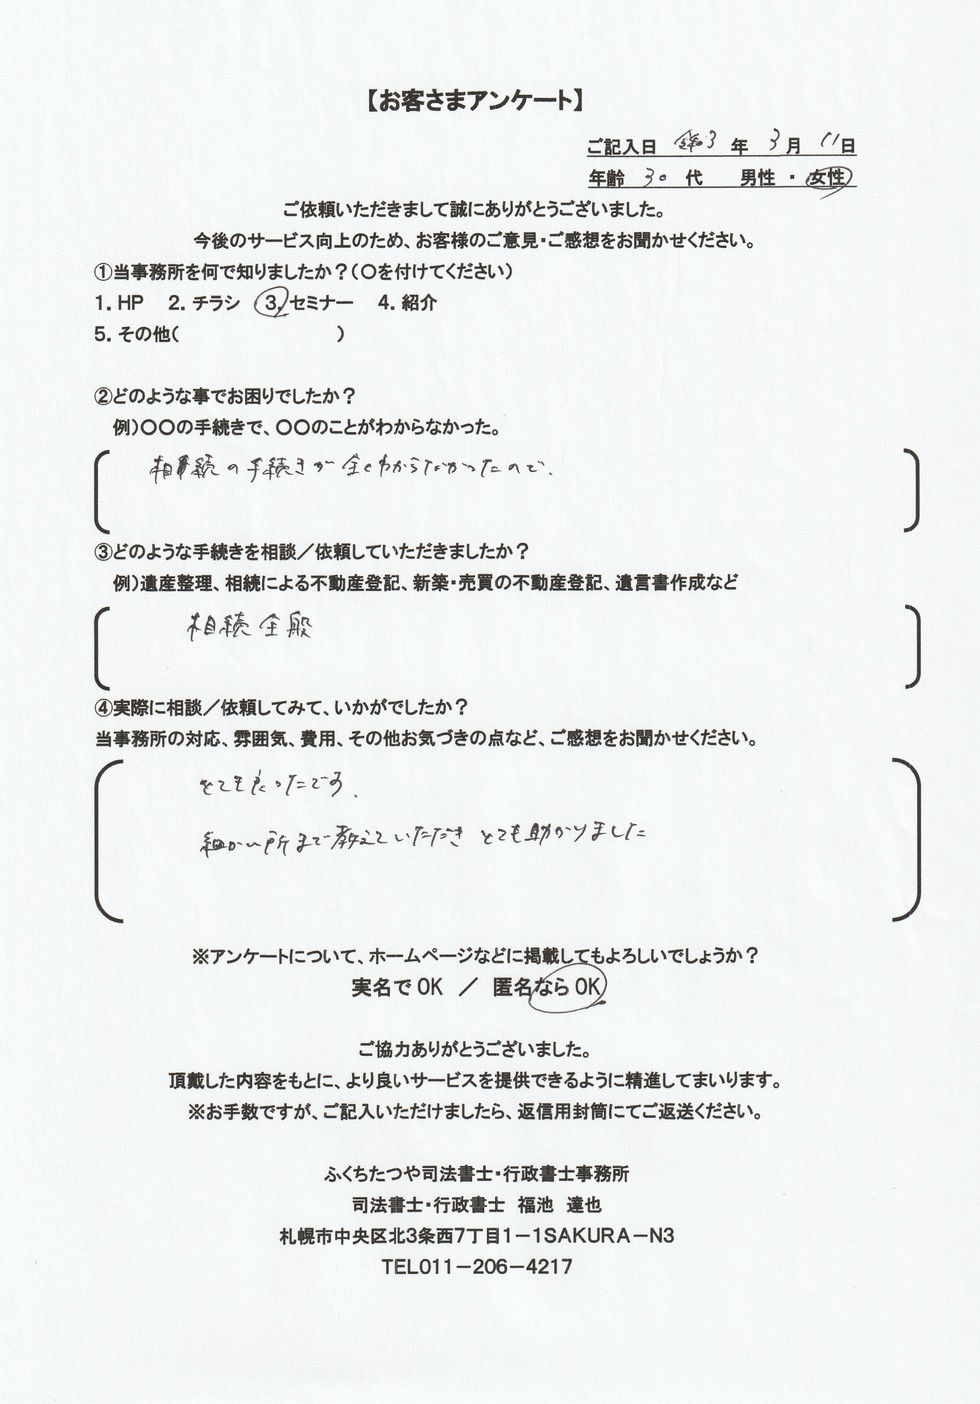 【お客さまアンケート】
ご記入日 令和3 年 3月 11日
年齢 30 代 男性 ・ 女性
ご依頼いただきまして誠にありがとうございました。
今後のサービス向上のため、お客様のご意見・ご感想をお聞かせください。
①当事務所を何で知りましたか？(○を付けてください)
1. HP 2. チラシ 3. セミナー 4. 紹介
5. その他( )
②どのような事でお困りでしたか？
例)○○の手続きで、○○のことがわからなかった。
相続の手続きが全くわからなかったので、
③どのような手続きを相談／依頼していただきましたか？
例)遺産整理、相続による不動産登記、新築・売買の不動産登記、遺言書作成など
相続全般
④実際に相談／依頼してみて、いかがでしたか？
当事務所の対応、雰囲気、費用、その他お気づきの点など、ご感想をお聞かせください。
とても良かったです、
細かい所まで教えていただき とても助かりました
※アンケートについて、ホームページなどに掲載してもよろしいでしょうか？
実名でOK ／ 匿名ならOK
ご協力ありがとうございました。
頂戴した内容をもとに、より良いサービスを提供できるように精進してまいります。
※お手数ですが、ご記入いただけましたら、返信用封筒にてご返送ください。
ふくちたつや司法書士・行政書士事務所
司法書士・行政書士 福池 達也
札幌市中央区北3条西7丁目1－1SAKURA－N3
TEL011－206－4217